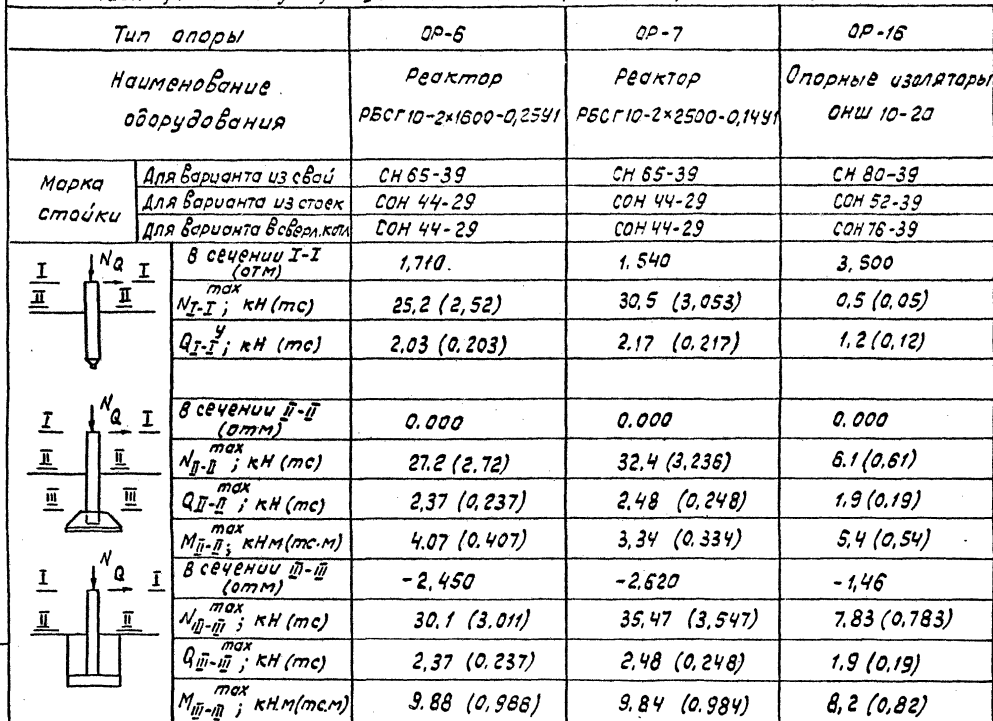 Тип опоры ОР-6 ОР-7 ОР-16
Наименование оборудования
Реактор РБСГ10-2×1600-0,25У1
Реактор РБСГ10-2×2500-0,14У1
Опорные изоляторы ОНШ 10-20
Марка стойки
Для варианта из свай СН 65-39 СН 65-39 СН 80-39
Для варианта из стоек СОН 44-29 СОН 44-29 СОН 52-39
Для варианта в сверл. котл СОН 44-29 СОН 44-29 СОН 76-39
N Q
I I
II II
В сечении I-I (отм) 1,710. 1.540 3,500
N I-I max; кН (тс) 25,2 (2,52) 30,5 (3,053) 0,5 (0,05)
Q I-I y; кН (тс) 2,03 (0.203) 2.17 (0.217) 1,2 (0,12)
N Q
I I
II II
III III
В сечении II-II (отм) 0.000 0.000 0.000
N II-II max; кН (тс) 27.2 (2.72) 32,4 (3,236) 6.1 (0,61)
Q II-II max; кН (тс) 2,37 (0,237) 2.48 (0,248) 1,9 (0,19)
M II-II max; кНм (тс.м) 4.07 (0.407) 3,34 (0.334) 5,4 (0,54)
N Q
I I
II II
В сечении III-III (отм) -2,450 -2,620 -1,46
N III-III max; кН (тс) 30.1 (3.011) 35,47 (3,547) 7.83 (0,783)
Q III-III max; кН (тс) 2,37 (0.237) 2,48 (0,248) 1,9 (0,19)
M III-III max; кН.м (тс.м) 9.88 (0,988) 9,84 (0.984) 8,2 (0,82)